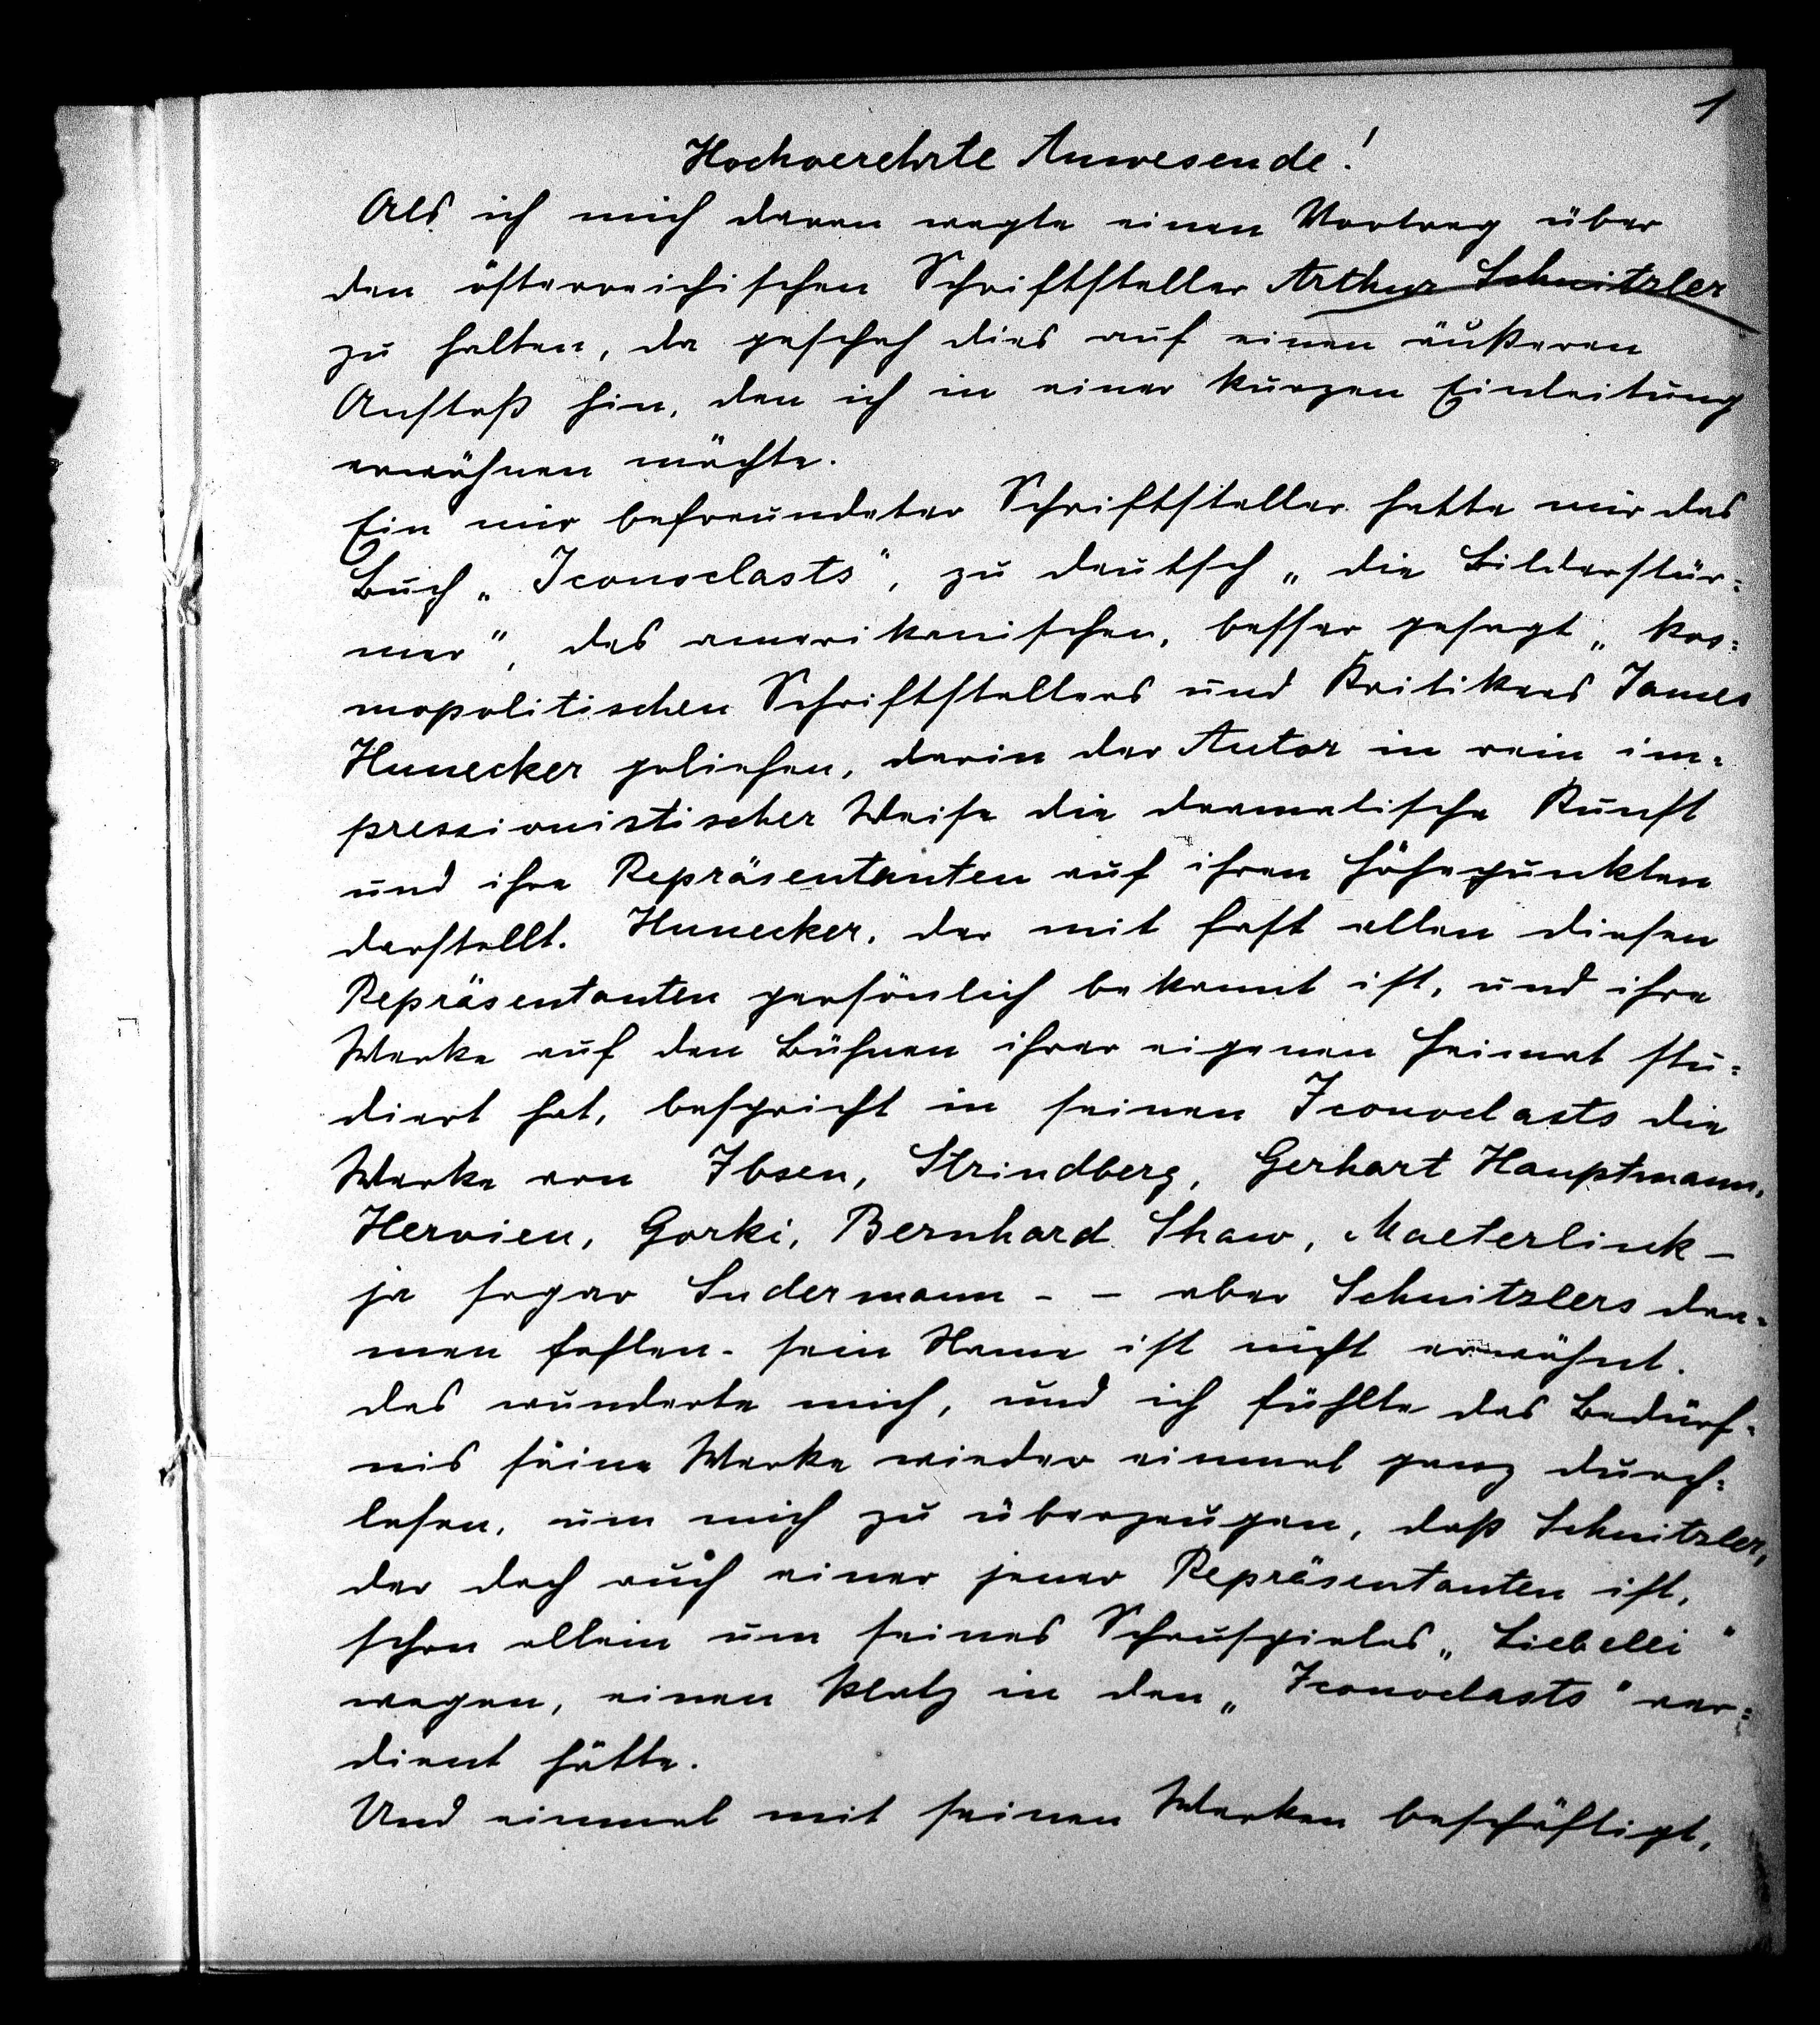 1
Hochverehrte Anwesende!
Als ich mich daran wagte einen Vortrag über
den österreichischen Schriftsteller Arthur Schnitzler
zu halten, da geschah dies auf einen äußeren
Anstoß hin, den ich in einer kurzen Einleitung
erwähnen möchte.
Ein mir befreundeter Schriftsteller hatte mir das
Buch „Iconoclasts", zu deutsch „die Bilderstür=
mer", des amerikanischen, besser gesagt „kos=
mopolitischen Schriftstellers und Kritikers James
Hunecker geliehen, darin der Autor in rein im=
pressionistischer Weise die dramatische Kunst
und ihre Repräsentanten auf ihren Höhepunkten
darstellt. Hunecker, der mit fast allen diesen
Repräsentanten persönlich bekannt ist, und ihre
Werke auf den Bühnen ihrer eigenen Heimat stu=
diert hat, bespricht in seinen Iconoclasts die
Werke von Ibsen, Strindberg, Gerhart Hauptmann,
Hervieu, Gorki, Bernhard Shaw, Maeterlinck –
ja sogar Sudermann - – aber Schnitzlers Dra=
men fehlen - sein Name ist nicht erwähnt.
Das wunderte mich, und ich fühlte das Bedürf=
nis seine Werke wieder einmal ganz durch=
lesen, um mich zu überzeugen, daß Schnitzler,
der doch auch einer jener Repräsentanten ist,
schon allein um seines Schauspieles „Liebelei"
wegen, einen Platz in den „Iconoclasts" ver=
dient hätte.
Und einmal mit seinen Werken beschäftigt,